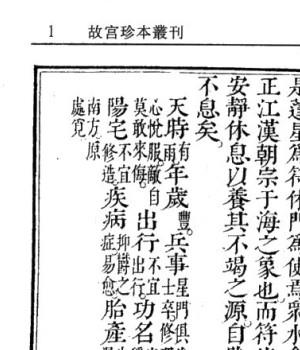 1 故宮珍本叢刊
是蓬星為符休門為使焉衆水
正江漢朝宗于海之象也而符
安靜休息以養其不竭之源自
不息矣。
天時有雨年歲豐。兵事星門俱
士卒修
心悅服敵自
莫敢來侮。出行不宜
出行功名
陽宅不宜
修造疾病抑鬱之
症易愈胎產
南方原
處覓